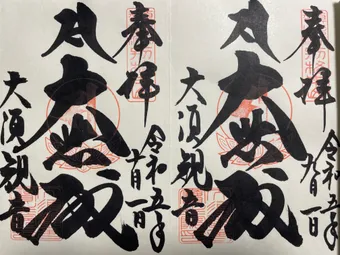 奉拝
令和五年
九月一日
大悲殿
大須観音
奉拝
令和五年
月一日
大悲殿
大須観音